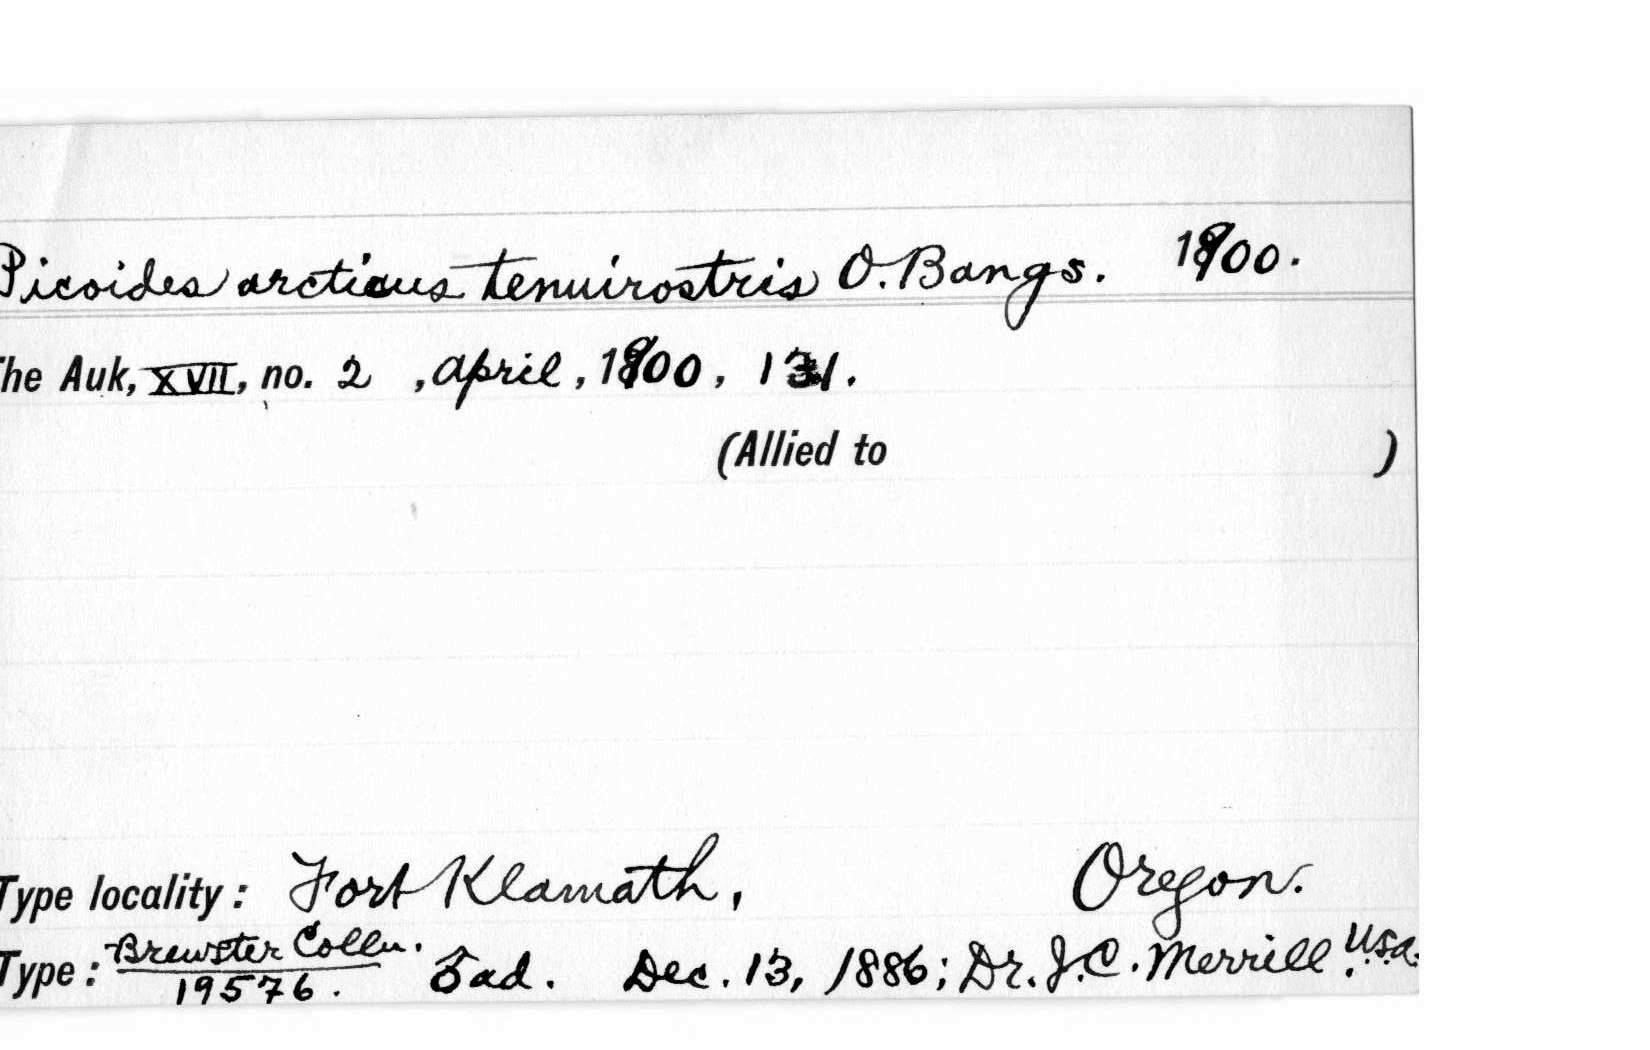 Picoides arcticus tenuirostris O. Bangs. 1900.
The Auk, XVII, no. 2 , April, 1900, 131.
(Allied to )
Type locality: Fort Klamath, Oregon.
Type: Brewster Colln. 19576. ♂ ad. Dec. 13, 1886; Dr. J. C. Merrill U.S.A.